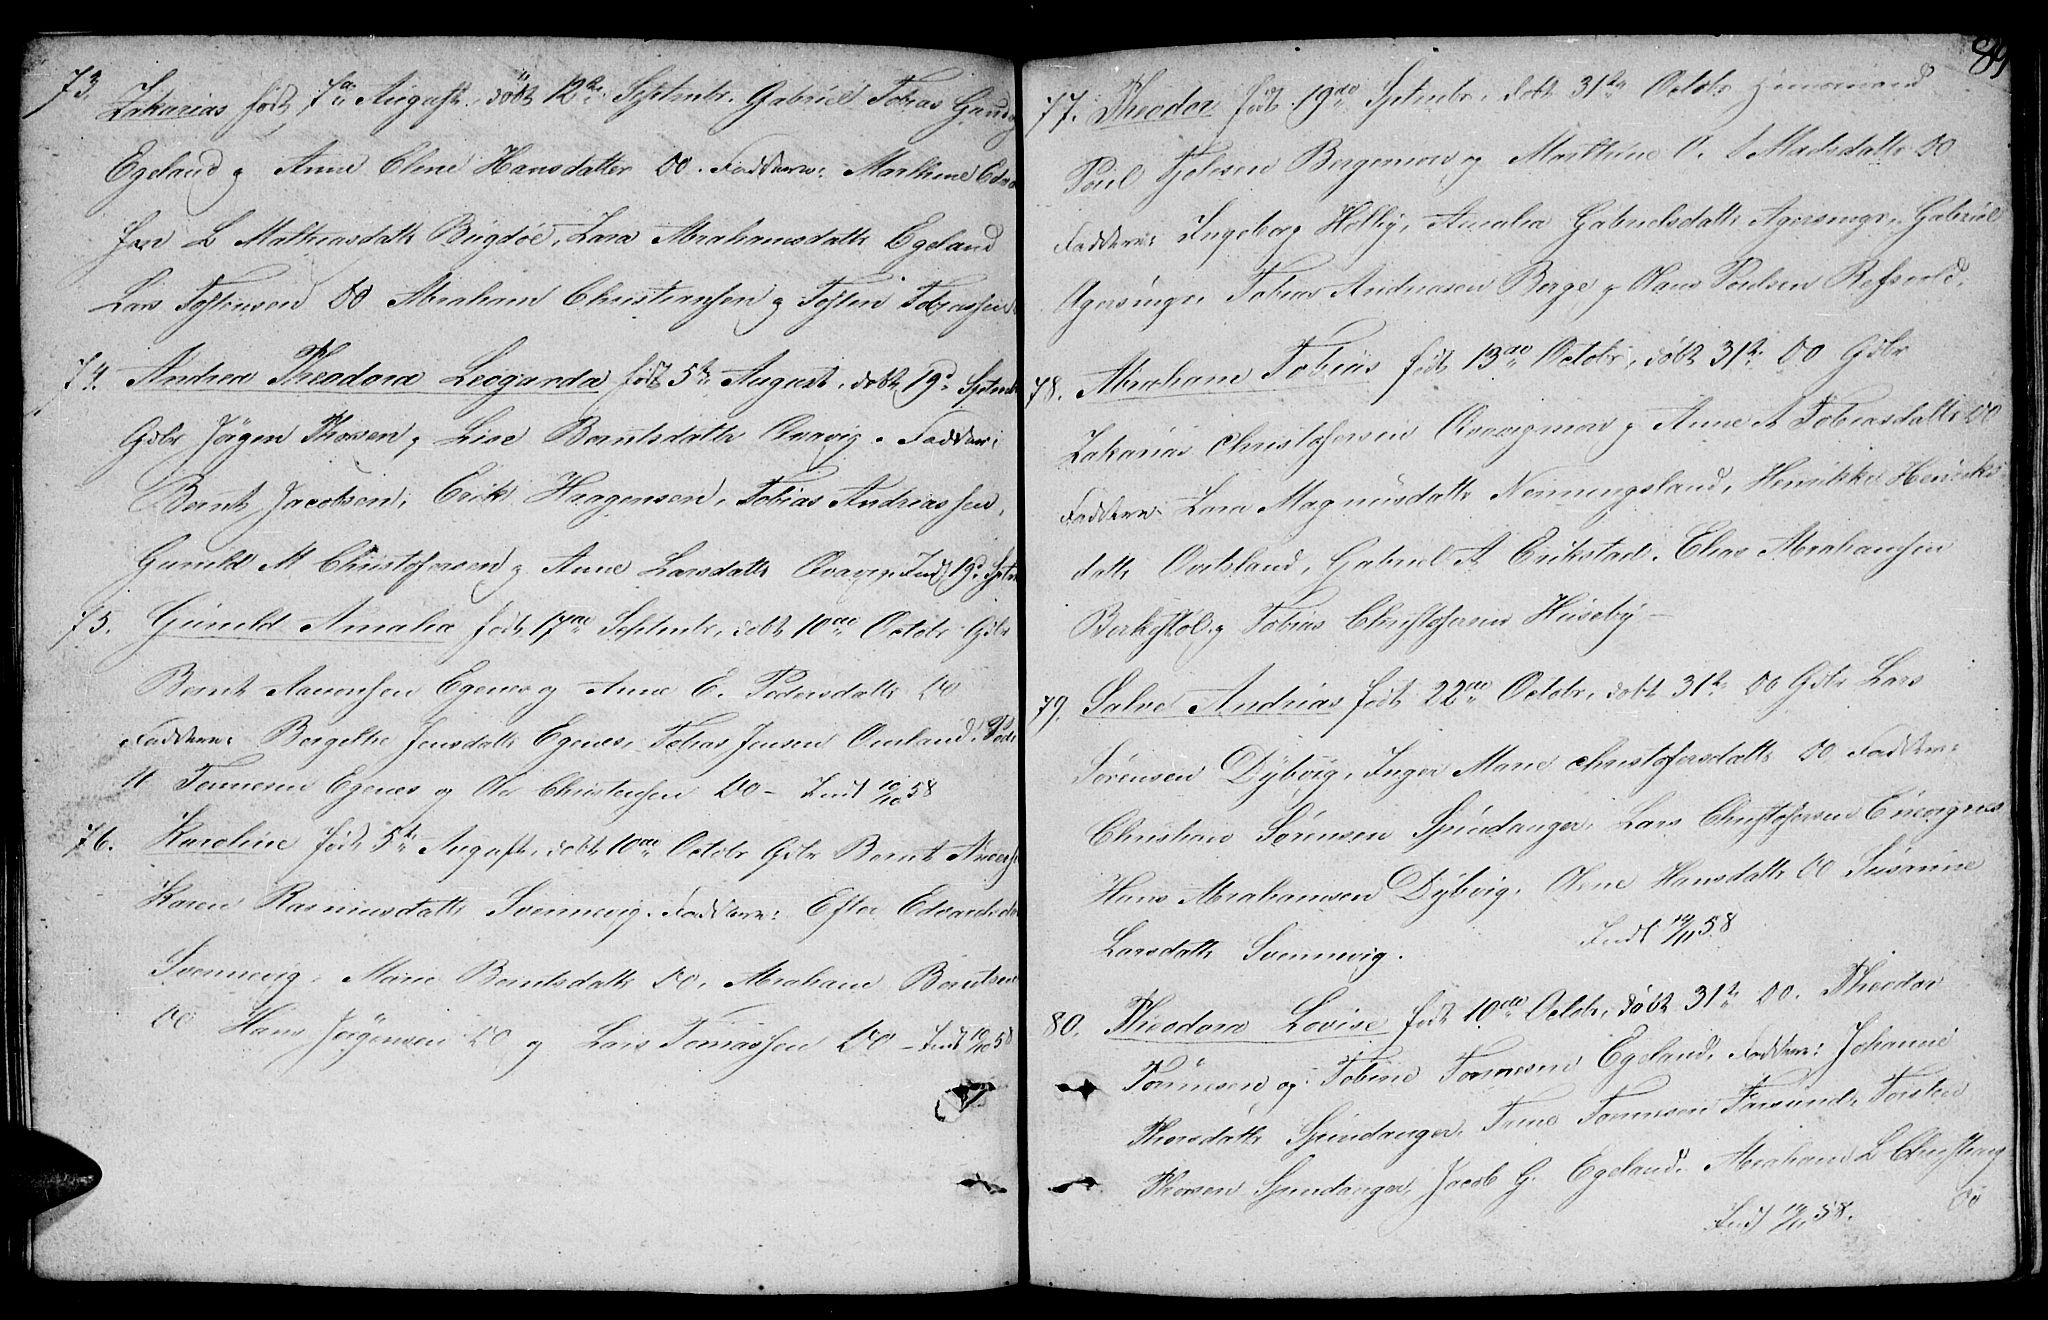 73. Zakarias født 7de August, døbt 12te Septembr. Gabriel Tobias
Egeland og Anne Elene Hansdatter DO. Faddere: Marthine
L Mathiasdatt Bugdøe, Lara Abrahamsdatt Egeland
Lars Tostensen DO Abraham Christiansen og Tosten Tobiassen
74. Andrea Theodora Leogarda født 5te August, døbt 19d Septembr
Gdbr Jørgen Thorsen og Lise Berntsdatt Qvavig. Faddere:
Bernt Jacobsen, Erik Haagensen, Tobias Andreassen,
Gunild M Christofersen og Anne Larsdatt Qvavig. Indt 19d Septr
75. Gunild Amalia født 17de Septembr, døbt 10de Octobr Gdbr
Bernt Aanensen Egenes og Anne E. Pedersdatt DO
Faddere: Bergethe Jensdatt Egenes, Tobias Jensen Omland,
Tønnesen Egenes og Christensen DO – Indt 10/10 58
76. Karoline født 5te August, døbt 10de Octobr Gdbr Bernt
Karen Rasmusdatt Svennevig. Faddere: Ester Edvardsdatt
Svennevig, Marie Berntsdatt DO, Abraham Berntsen
DO Hans Jørgensen DO og Lars Tomassen DO – Indt 10/10 58
89
77. Theodor født 19de Septembr, døbt 31te Octobr
Poul Bergesen og Marthine Madsdatt DO
Faddere: Ingeborg Helliy, Amalia Gabrielsdatt Gabriel
Tobias Andreasen Berge og Hans Poulsen Refsvold.
78. Abraham Tobias født 13de Octobr, døbt 31te DO Gdbr
Zakarias Christofersen og Anne A Tobiasdatt DO
Faddere: Lara Magnusdatt Nenningsland, Henrikke Henriks
datt Gabriel A Erikstad, Elias Abrahamsen
Berkestøl og Tobias Christofersen Huseby –
79. Salve Andrias født 22de Octobr, døbt 31te DO Gdbr Lars
Sørensen Dybvig, Inger Marie Christofersdatt DO Faddere:
Christian Sørensen Spindanger, Lars Christofersen
Hans Abrahamsen Dybvig, Olene Hansdatt DO Susanne
Larsdatt Svennevig. Indt 14/11 58
80. Theodora Lovise født 10de Octobr, døbt 31te DO. Theodor
Tønnesen og Tobine Tønnesen Egeland, Faddere: Johanne
Thorsdatt Spindanger, Trine Tønnesen Farsund, Torsten
Thorsen Spindanger, Jacob G. Egeland, Abraham L Christians
DO
Indt 14/11 58.